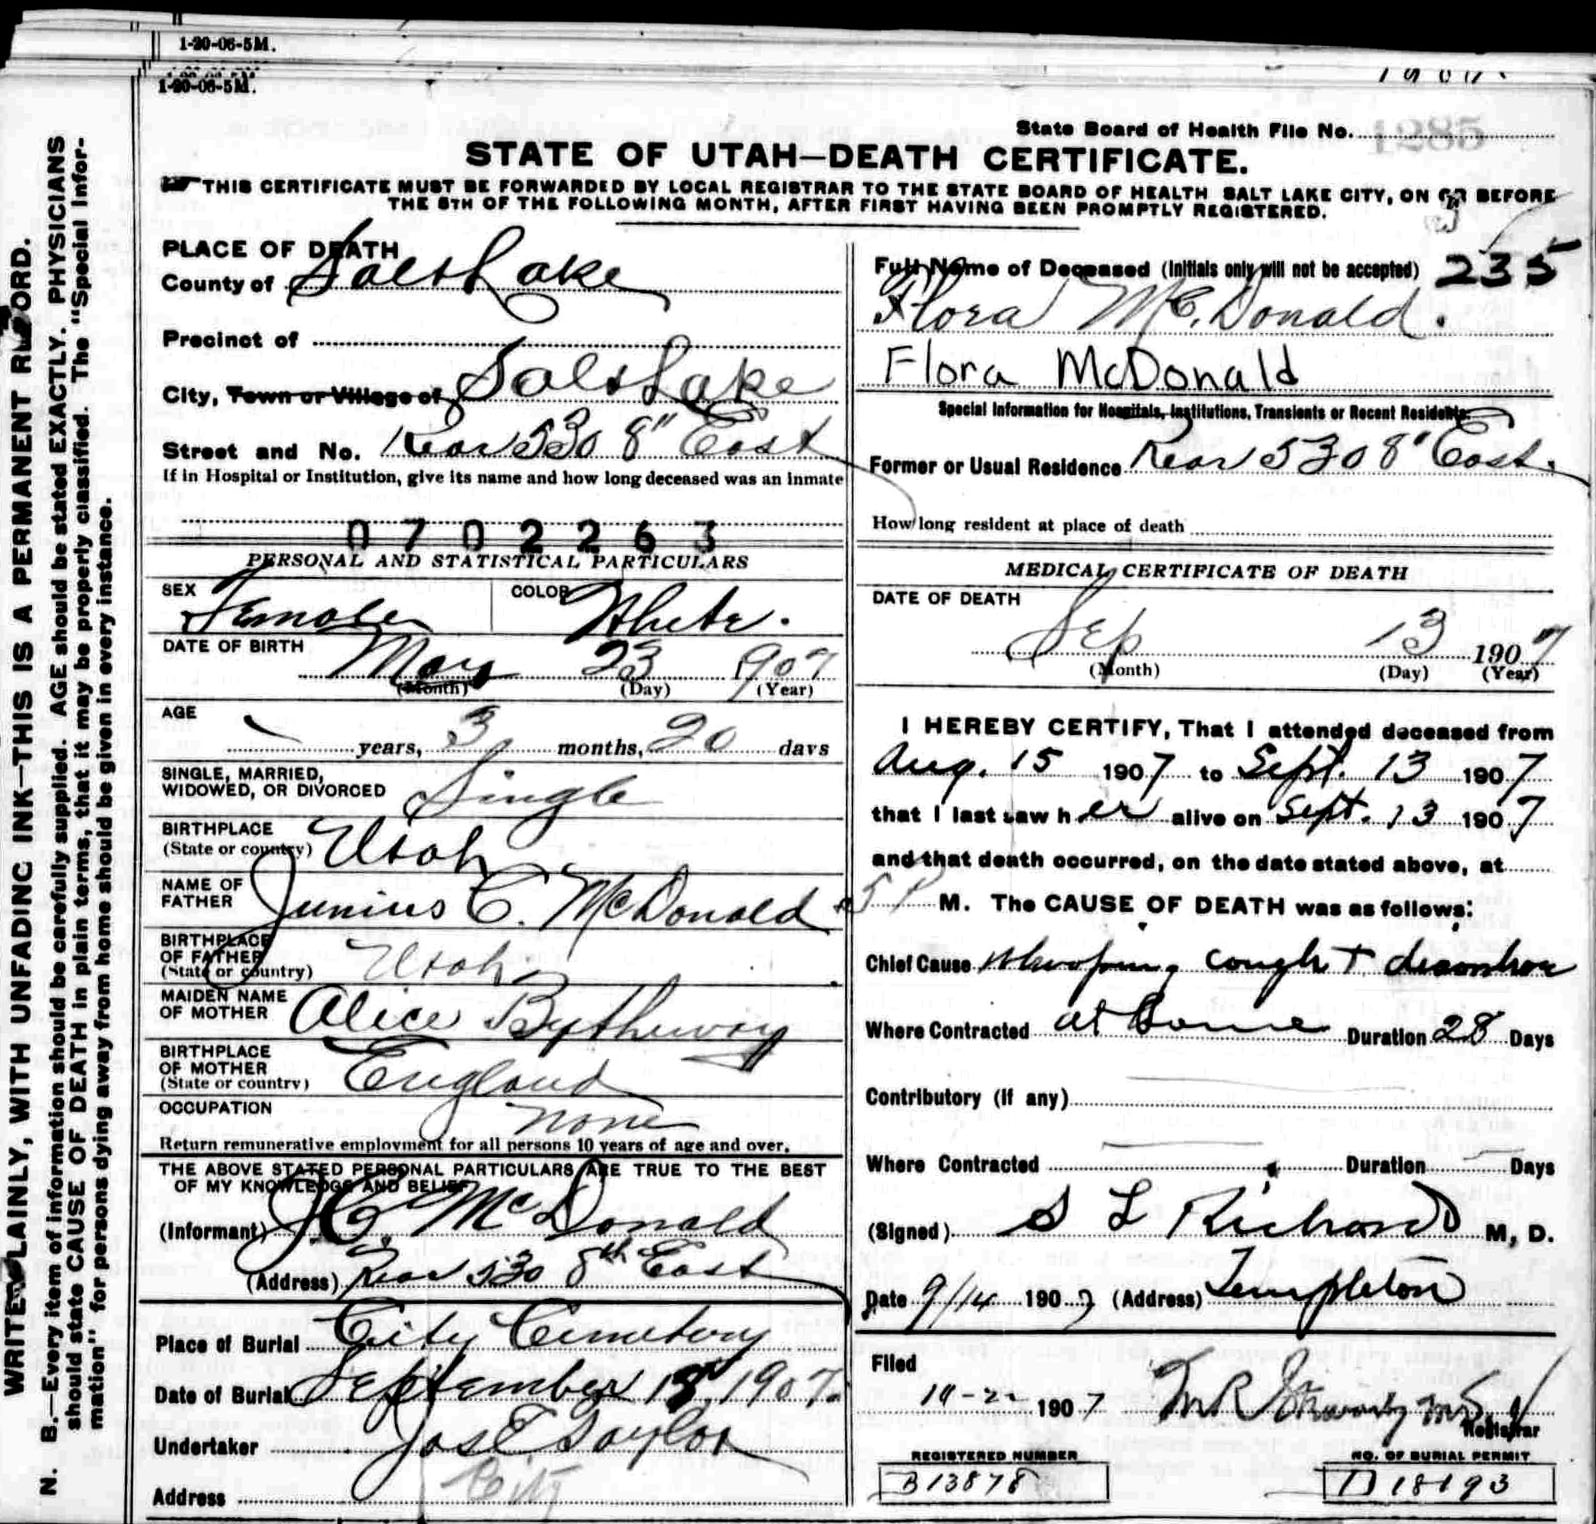 1-20-06-5M.
1-20-06-5M.
State Board of Health File No. 1285
STATE OF UTAH—DEATH CERTIFICATE.
THIS CERTIFICATE MUST BE FORWARDED BY LOCAL REGISTRAR TO THE STATE BOARD OF HEALTH SALT LAKE CITY, ON OR BEFORE
THE 5TH OF THE FOLLOWING MONTH, AFTER FIRST HAVING BEEN PROMPTLY REGISTERED.
WRITE PLAINLY, WITH UNFADING INK—THIS IS A PERMANENT RECORD.
N. B.—Every item of information should be carefully supplied. AGE should be stated EXACTLY. PHYSICIANS
should state CAUSE OF DEATH in plain terms, that it may be properly classified. The "Special Infor-
mation" for persons dying away from home should be given in every instance.
PLACE OF DEATH
County of Salt Lake
Precinct of
City, Town or Village of Salt Lake
Street and No. Rear 530 8" East
If in Hospital or Institution, give its name and how long deceased was an inmate
0702263
PERSONAL AND STATISTICAL PARTICULARS
SEX Female COLOR White.
DATE OF BIRTH May 23 1907
(Month) (Day) (Year)
AGE
years, 3 months, 20 days
SINGLE, MARRIED,
WIDOWED, OR DIVORCED Single
BIRTHPLACE
(State or country) Utah
NAME OF
FATHER Junius C. McDonald
BIRTHPLACE
OF FATHER
(State or country) Utah
MAIDEN NAME
OF MOTHER Alice Bytheway
BIRTHPLACE
OF MOTHER
(State or country) England
OCCUPATION none
Return remunerative employment for all persons 10 years of age and over.
THE ABOVE STATED PERSONAL PARTICULARS ARE TRUE TO THE BEST
OF MY KNOWLEDGE AND BELIEF
(Informant) J. C. McDonald
(Address) Rear 530 8th East
Place of Burial City Cemetery
Date of Burial September 1907.
Undertaker Jos E Taylor
Address City
Full Name of Deceased (Initials only will not be accepted) 235
Flora McDonald.
Flora McDonald
Special Information for Hospitals, Institutions, Transients or Recent Residents
Former or Usual Residence Rear 530 8" East.
How long resident at place of death
MEDICAL CERTIFICATE OF DEATH
DATE OF DEATH
Sep 13 1907
(Month) (Day) (Year)
I HEREBY CERTIFY, That I attended deceased from
Aug. 15 1907 to Sept. 13 1907
that I last saw her alive on Sept. 13 1907
and that death occurred, on the date stated above, at
5 P M. The CAUSE OF DEATH was as follows:
Chief Cause Whooping cough +
Where Contracted at home Duration 28 Days
Contributory (if any)
Where Contracted Duration Days
(Signed) S L Richards M, D.
Date 9/14 1907 (Address) Templeton
Filed
1907
Registrar
REGISTERED NUMBER
B13878
NO. OF BURIAL PERMIT
D 18193